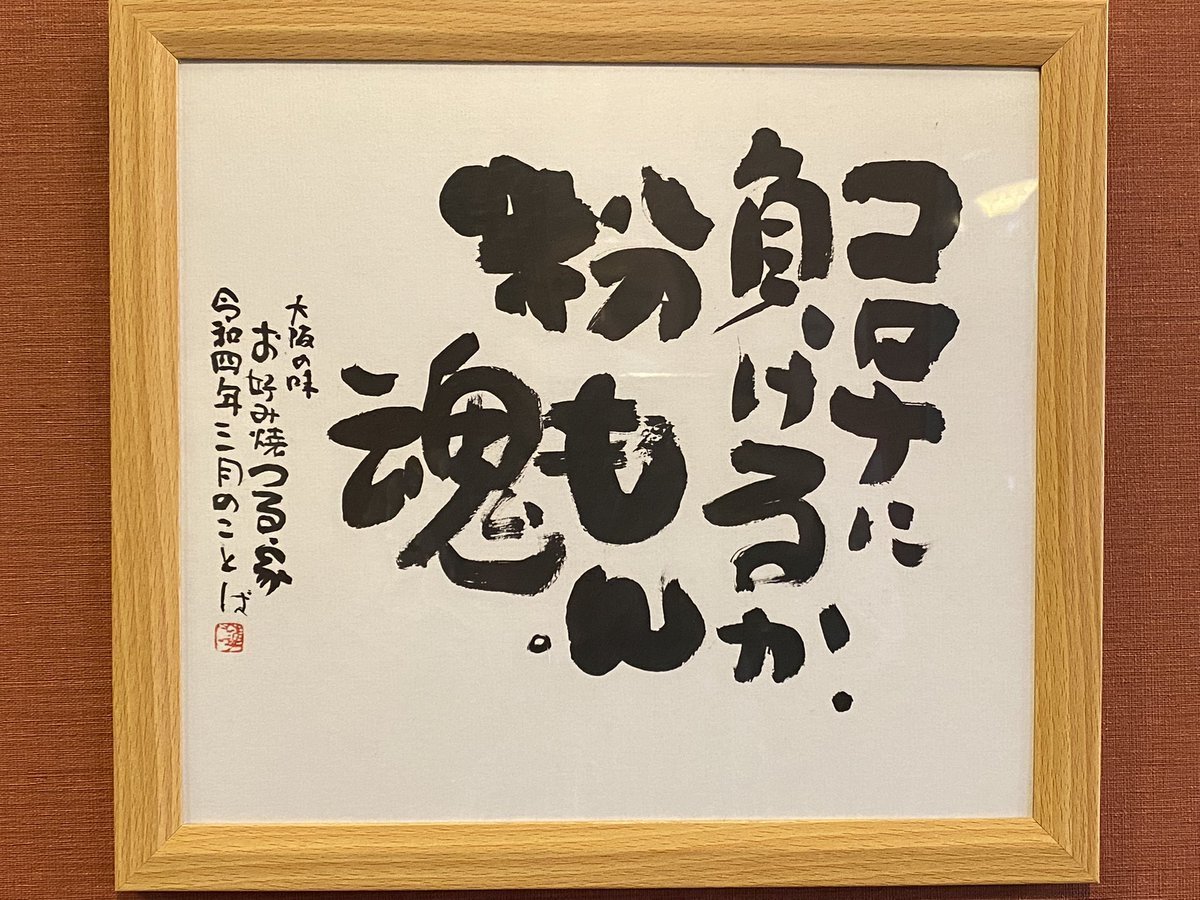 コロナに
負けるか!
粉もん
魂。
大阪の味
お好み焼つる家
令和四年三月のことば